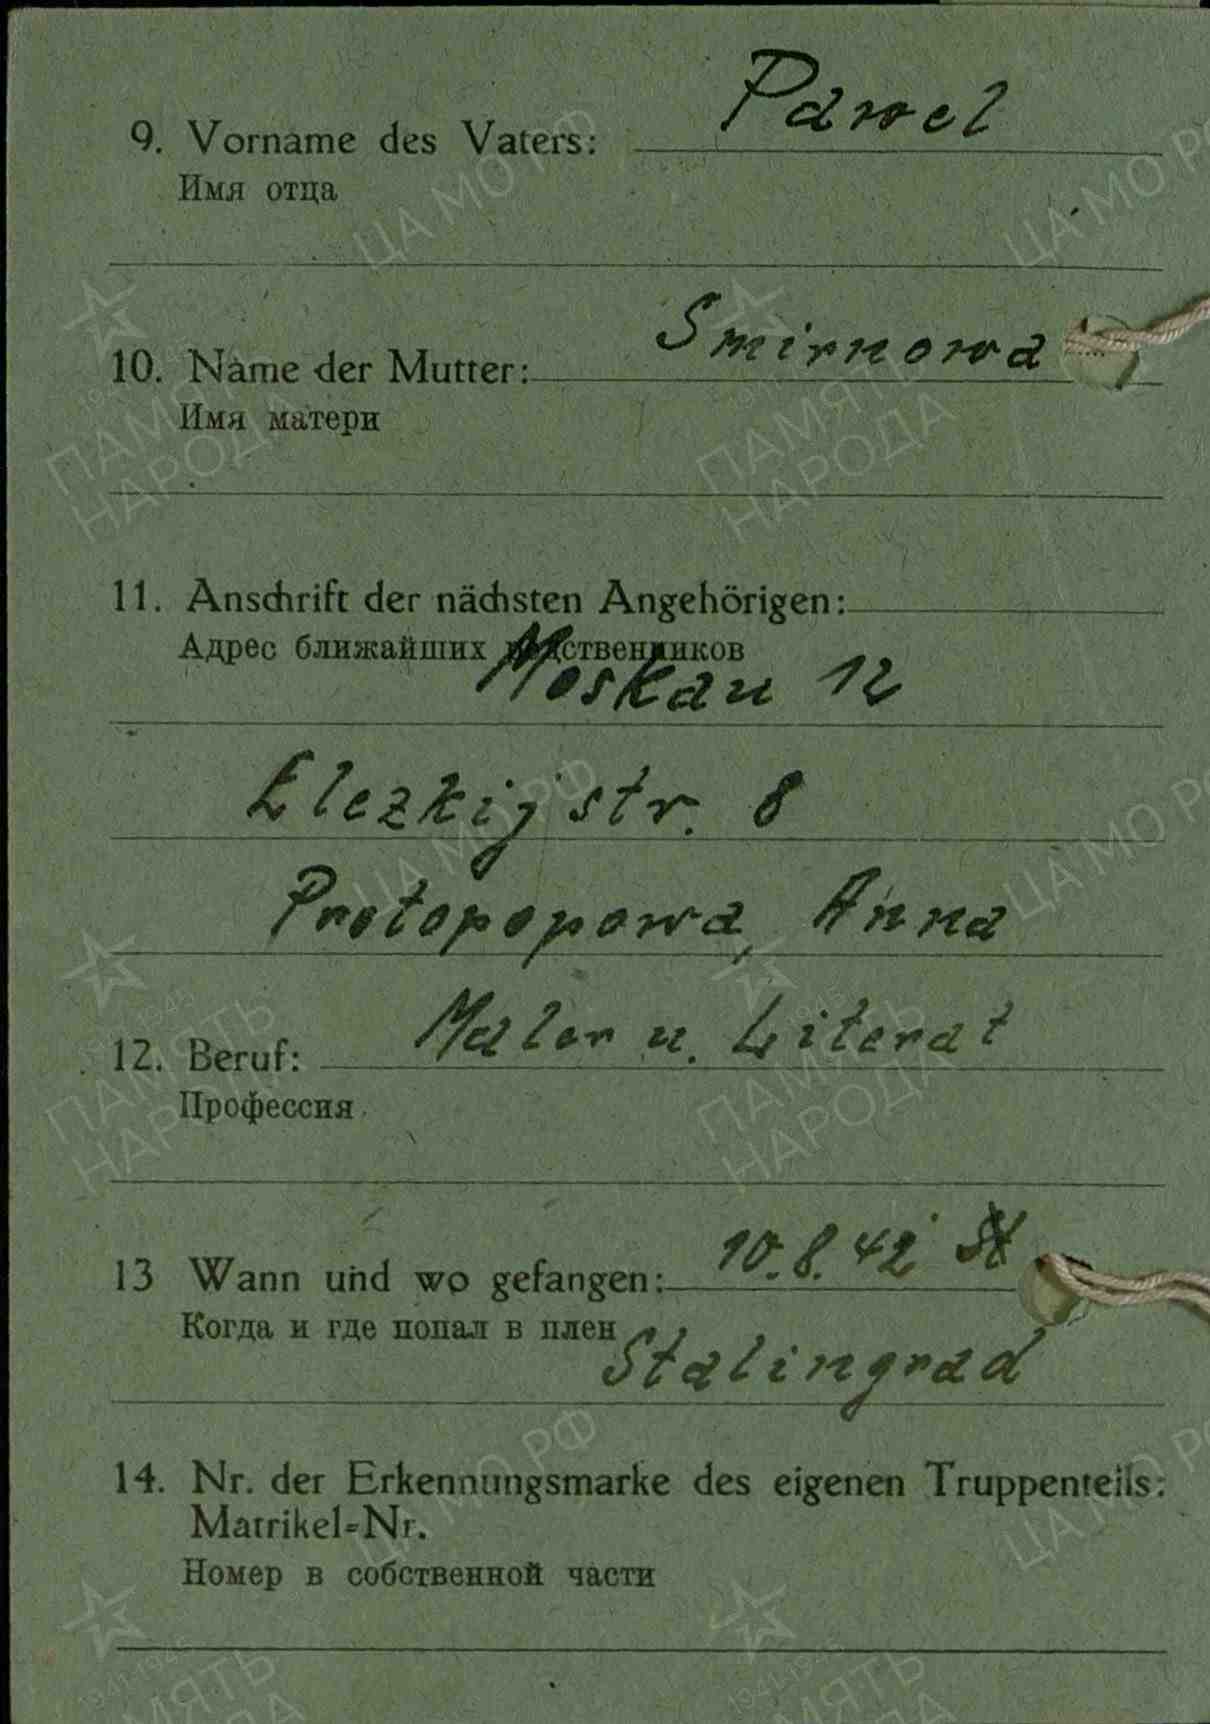 9. Vorname des Vaters: Pawel
Имя отца
10. Name der Mutter: Smirnowa
Имя матери
11. Anschrift der nächsten Angehörigen:
Адрес ближайших родственников
Moskau 12
Elezkij str. 8
Protopopowa, Anna
12. Beruf: Maler u. Literat
Профессия
13 Wann und wo gefangen: 10.8.42 St
Когда и где попал в плен
Stalingrad
14. Nr. der Erkennungsmarke des eigenen Truppenteils:
Matrikel=Nr.
Номер в собственной части
ЦА МО РФ
1941-1945
ПАМЯТЬ
НАРОДА